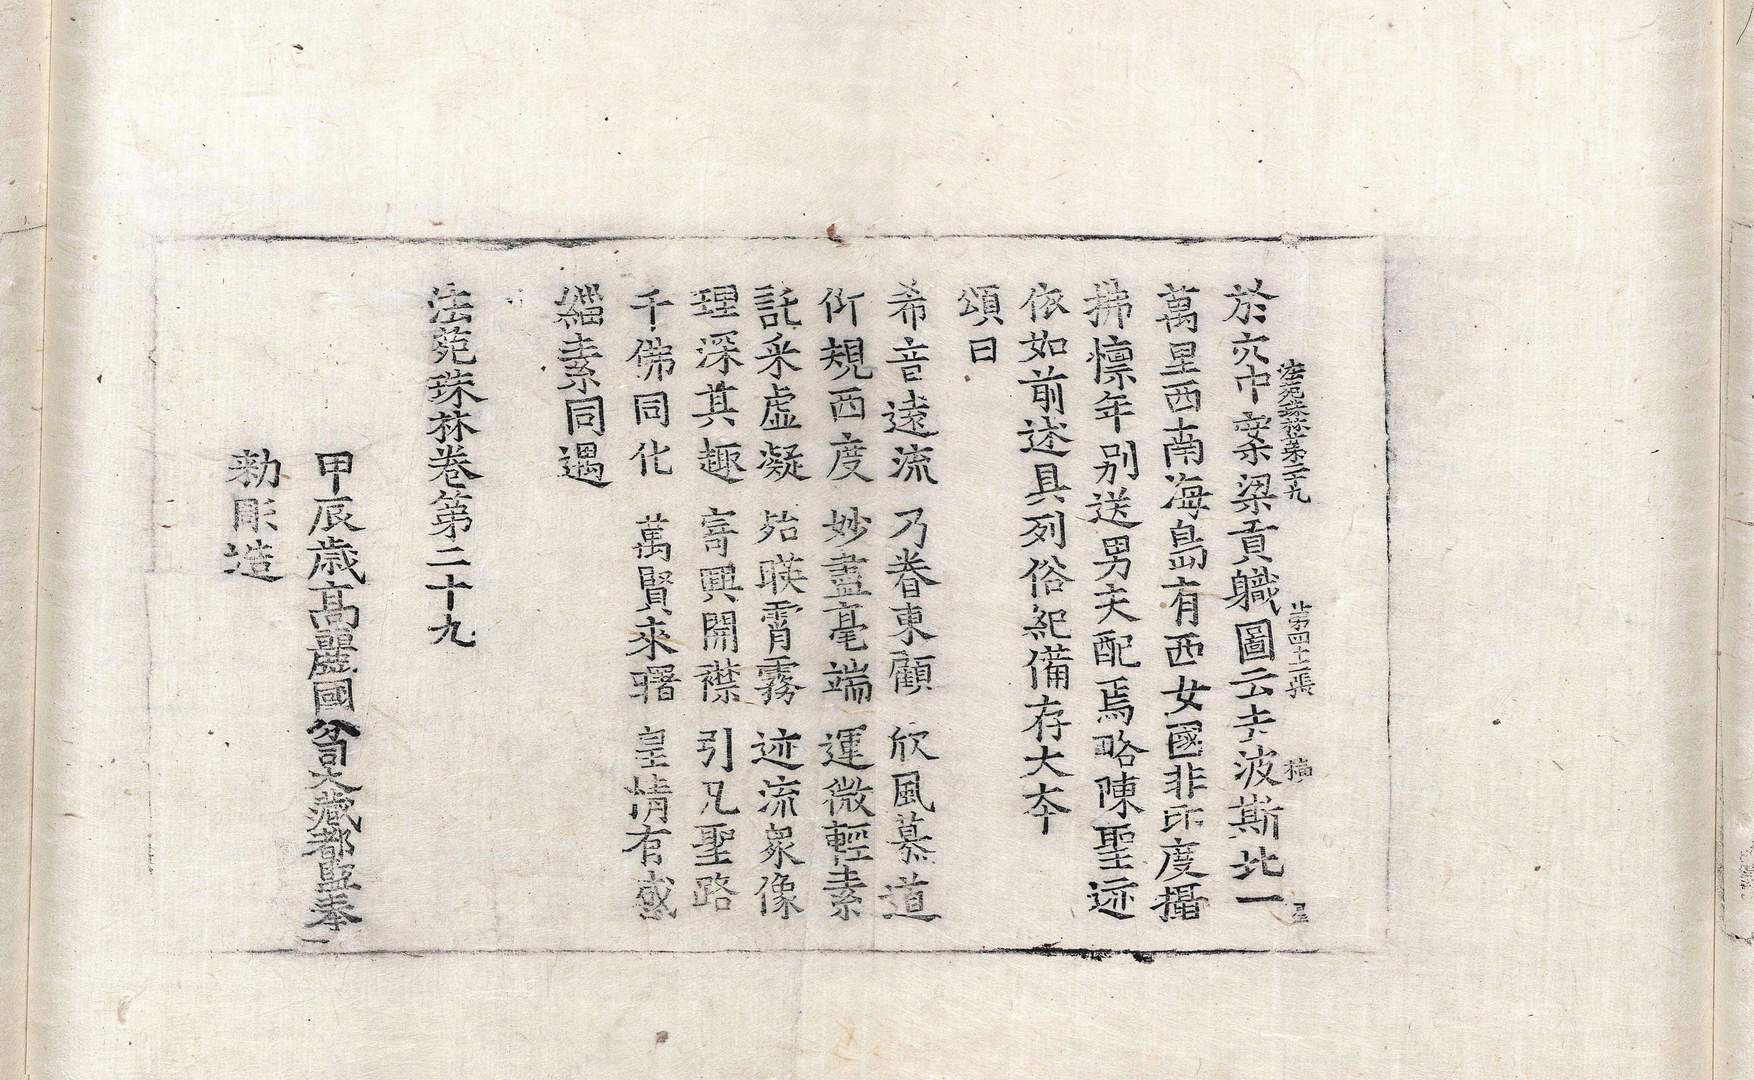 法苑珠林第二十九 第四十二張 橫
於穴中案梁貢職圖云去波斯北一
萬里西南海島有西女國非印度攝
拂懍年別送男夫配焉略陳聖迹
依如前述具列俗紀備存大本
頌曰
希音遠流 乃眷東顧 欣風慕道
仰規西度 妙盡毫端 運微輕素
託采虛凝 殆映霄霧 迹流衆像
理深其趣 奇興開襟 引凡聖路
千佛同化 萬賢來曙 皇情有感
緇素同遇
法苑珠林卷第二十九
甲辰歳高麗國分司大藏都監奉
勅彫造